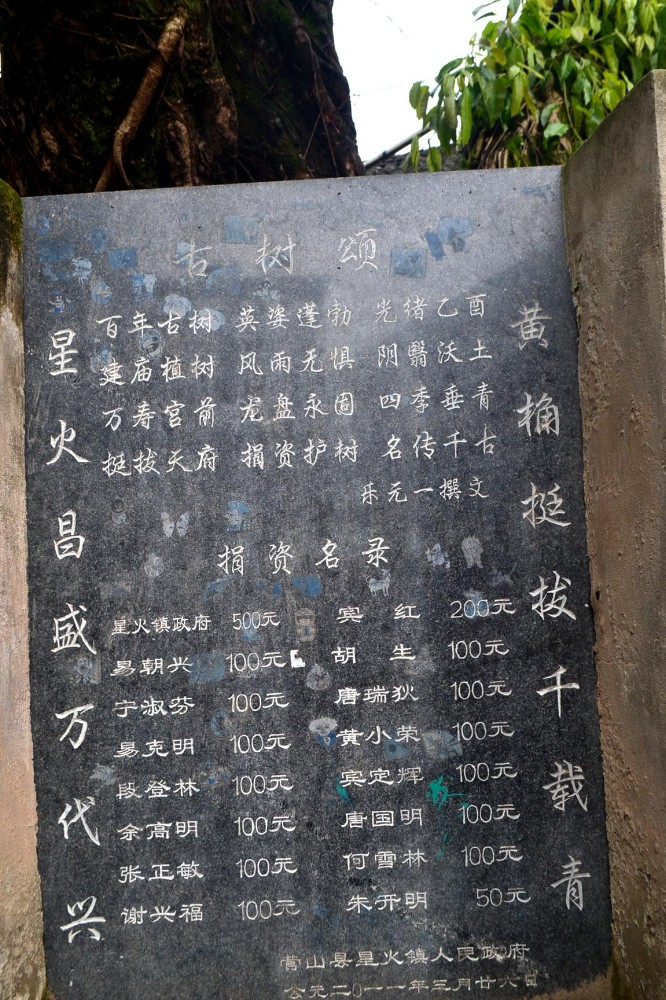 古树颂
黄桷挺拔千载青
星火昌盛万代兴
百年古树 英姿蓬勃 光绪乙酉
建庙植树 风雨无惧 阴翳沃土
万寿宫前 龙盘永固 四季垂青
挺拔天府 捐资护树 名传千古
乐元一撰文
捐资名录
星火镇政府 500元 宾红 200元
易朝兴 100元 胡生 100元
宁淑芬 100元 唐瑞狄 100元
易克明 100元 黄小荣 100元
段登林 100元 宾定辉 100元
余高明 100元 唐国明 100元
张正敏 100元 何雪林 100元
谢兴福 100元 朱开明 50元
营山县星火镇人民政府
公元二0一一年三月廿六日